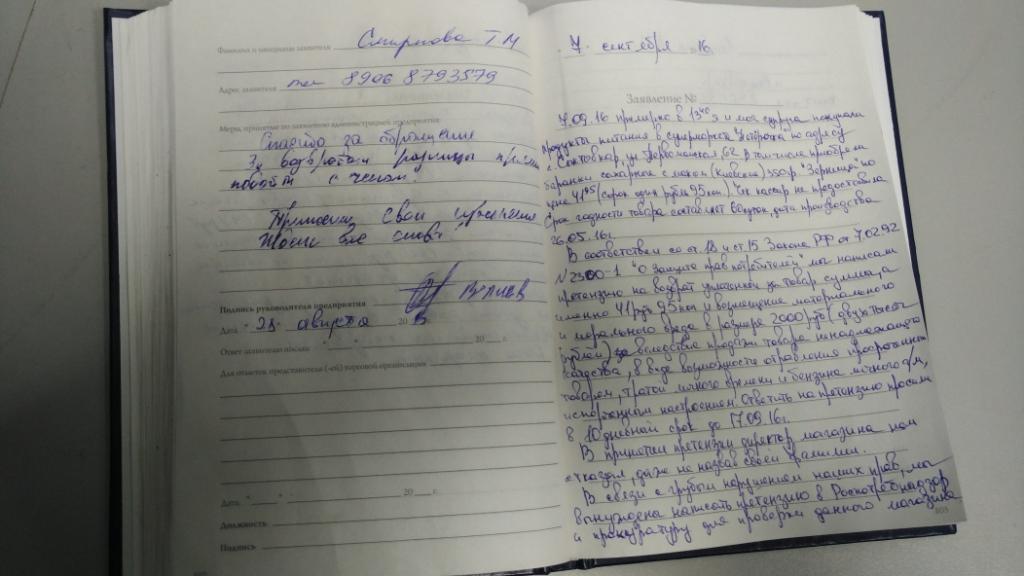 Фамилия и инициалы заявителя Смирнова Т М
Адрес заявителя тел 8906 8793579
Меры, принятые по заявлению администрацией предприятия:
Спасибо за обращение
За возвратом разницы
с чеком.
Приносим свои извинения
Ждем вас снова
Подпись руководителя предприятия
Дата "28" августа 20
Ответ заявителю послан " " 20 г.
Для отметок представителя (-ей) торговой организации
Дата " " 20 г.
Должность
Подпись
"7" сентября 16
Заявление №
7.09.16 примерно в 13 40 я и моя супруга покупали
продукты питания в супермаркете по адресу
г. Сыктывкар, ул. Первомайская, 62 в том числе приобрели
баранки сахарные с маком (Киевские) 350гр. "Зерница" по
цене 41 95 (сорок один рубль 95 коп). Чек кассир не предоставила
Срок годности товара составляет дата производства
26.05.16г.
В соответствии со ст. 18 и ст 15 Закона РФ от 7.02.92
N 2300-1 "О защите прав потребителей" мы написали
претензию на возврат уплаченной за товар суммы, а
именно 41 рубль 95 коп и возмещение материального
и морального вреда в размере 2000 руб (двух тысяч
рублей) вследствие продажи товара ненадлежащего
качества, в виде возможности отравления просроченным
товаром, тратой личного времени и бензина личного а/м,
испорченным настроением. Ответить на претензию просили
в 10 дневный срок до 17.09.16г.
В принятии претензии директор магазина нам
отказал, даже не назвав своей фамилии.
В связи с грубым нарушением наших прав, мы
вынуждены написать претензию в Роспотребнадзор
и прокуратуру для проверки данного магазина